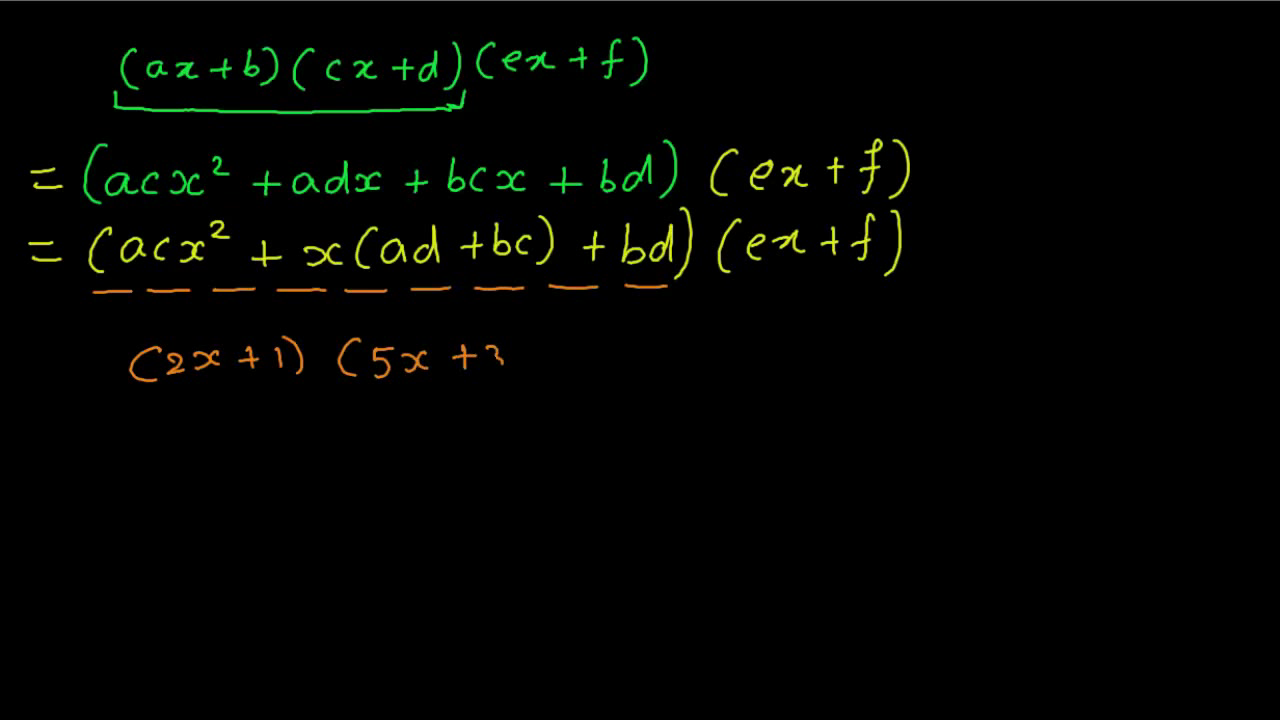 (ax+b)(cx+d)(ex+f)
= (acx² + adx + bcx + bd) (ex + f)
= (acx² + x(ad + bc) + bd) (ex + f)
(2x + 1) (5x + 3